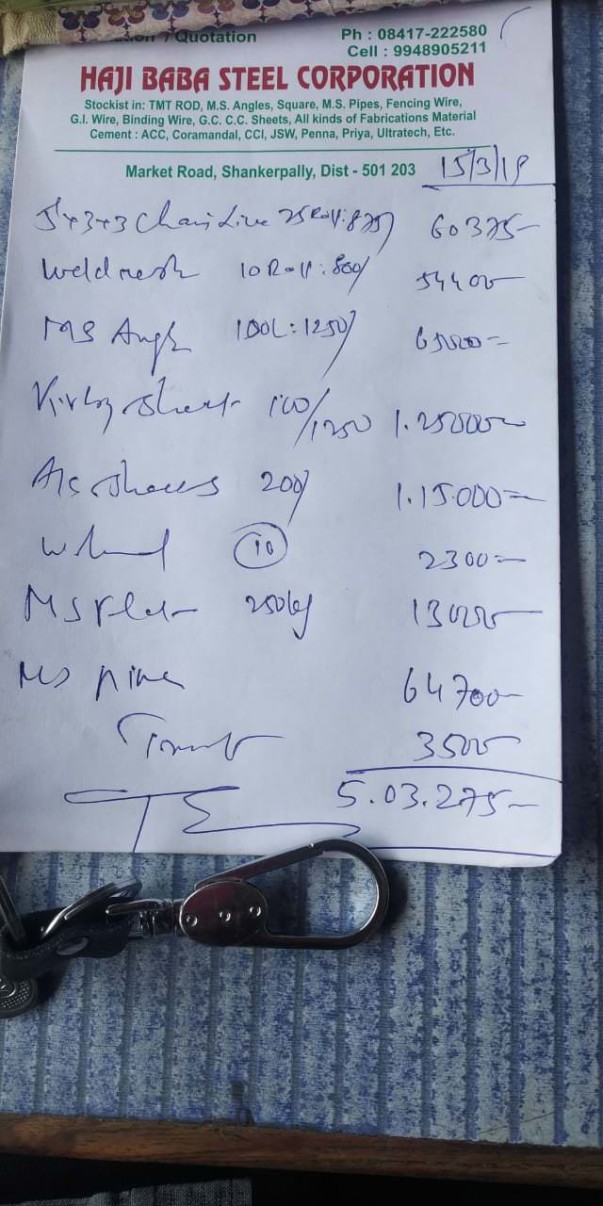 Quotation
Ph : 08417-222580
Cell : 9948905211
HAJI BABA STEEL CORPORATION
Stockist in: TMT ROD, M.S. Angles, Square, M.S. Pipes, Fencing Wire,
G.I. Wire, Binding Wire, G.C. C.C. Sheets, All kinds of Fabrications Material
Cement : ACC, Coramandal, CCI, JSW, Penna, Priya, Ultratech, Etc.
Market Road, Shankerpally, Dist - 501 203 15/3/19
3+3 Chain 60375-
weldmesh 10 Roll: 54400
MS Angle 100L: 1250/ 65000=
sheet 100/1250 1.25000
200/ 1.15.000=
10 2300=
MS 250kg 13000
MS pipe 64700-
3500
5.03.275-